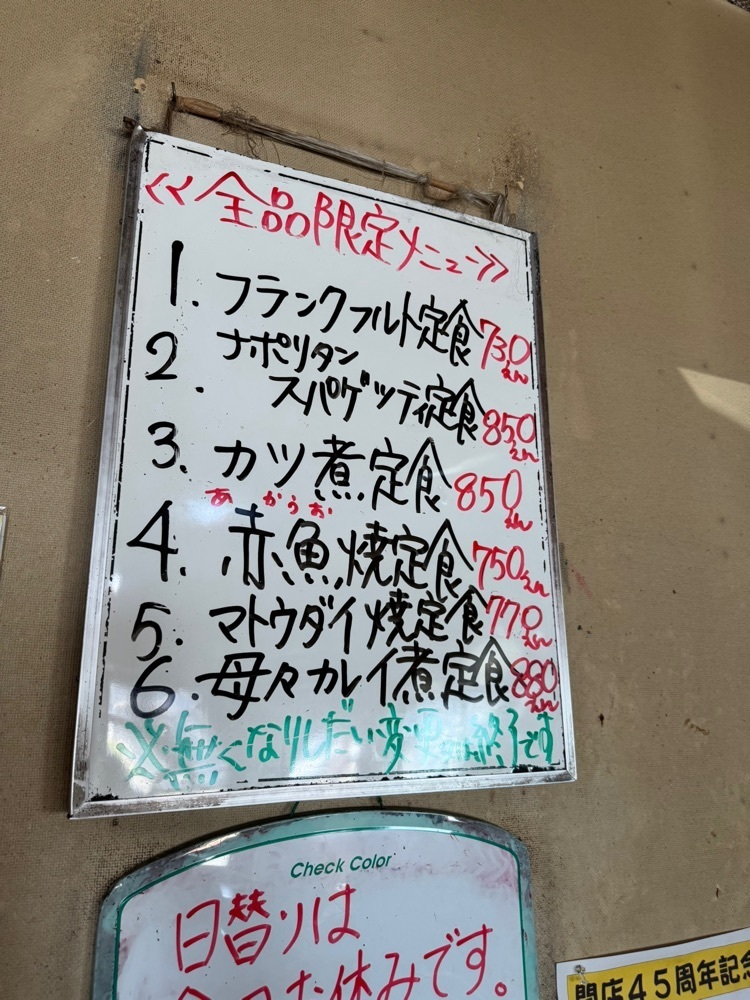 <<全品限定メニュー>>
1. フランクフルト定食 730えん
2. ナポリタン
スパゲッティ定食 850えん
3. カツ煮定食 850えん
あからお
4. 赤魚焼定食 750えん
5. マトウダイ焼定食 770えん
6. 母々カレイ煮定食 880えん
※無くなりしだい変更 終了です
Check Color
日替りは
お休みです。
開店45周年記念